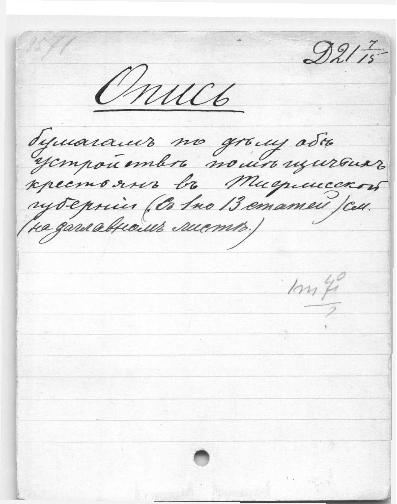 Д21 7/15
Опись
бумагамъ по дѣлу объ
устройствѣ помѣщичьихъ
крестьянъ въ Тифлисской
губернiи (Съ 1 по 13 статей) см.
(на заглавномъ листѣ.)